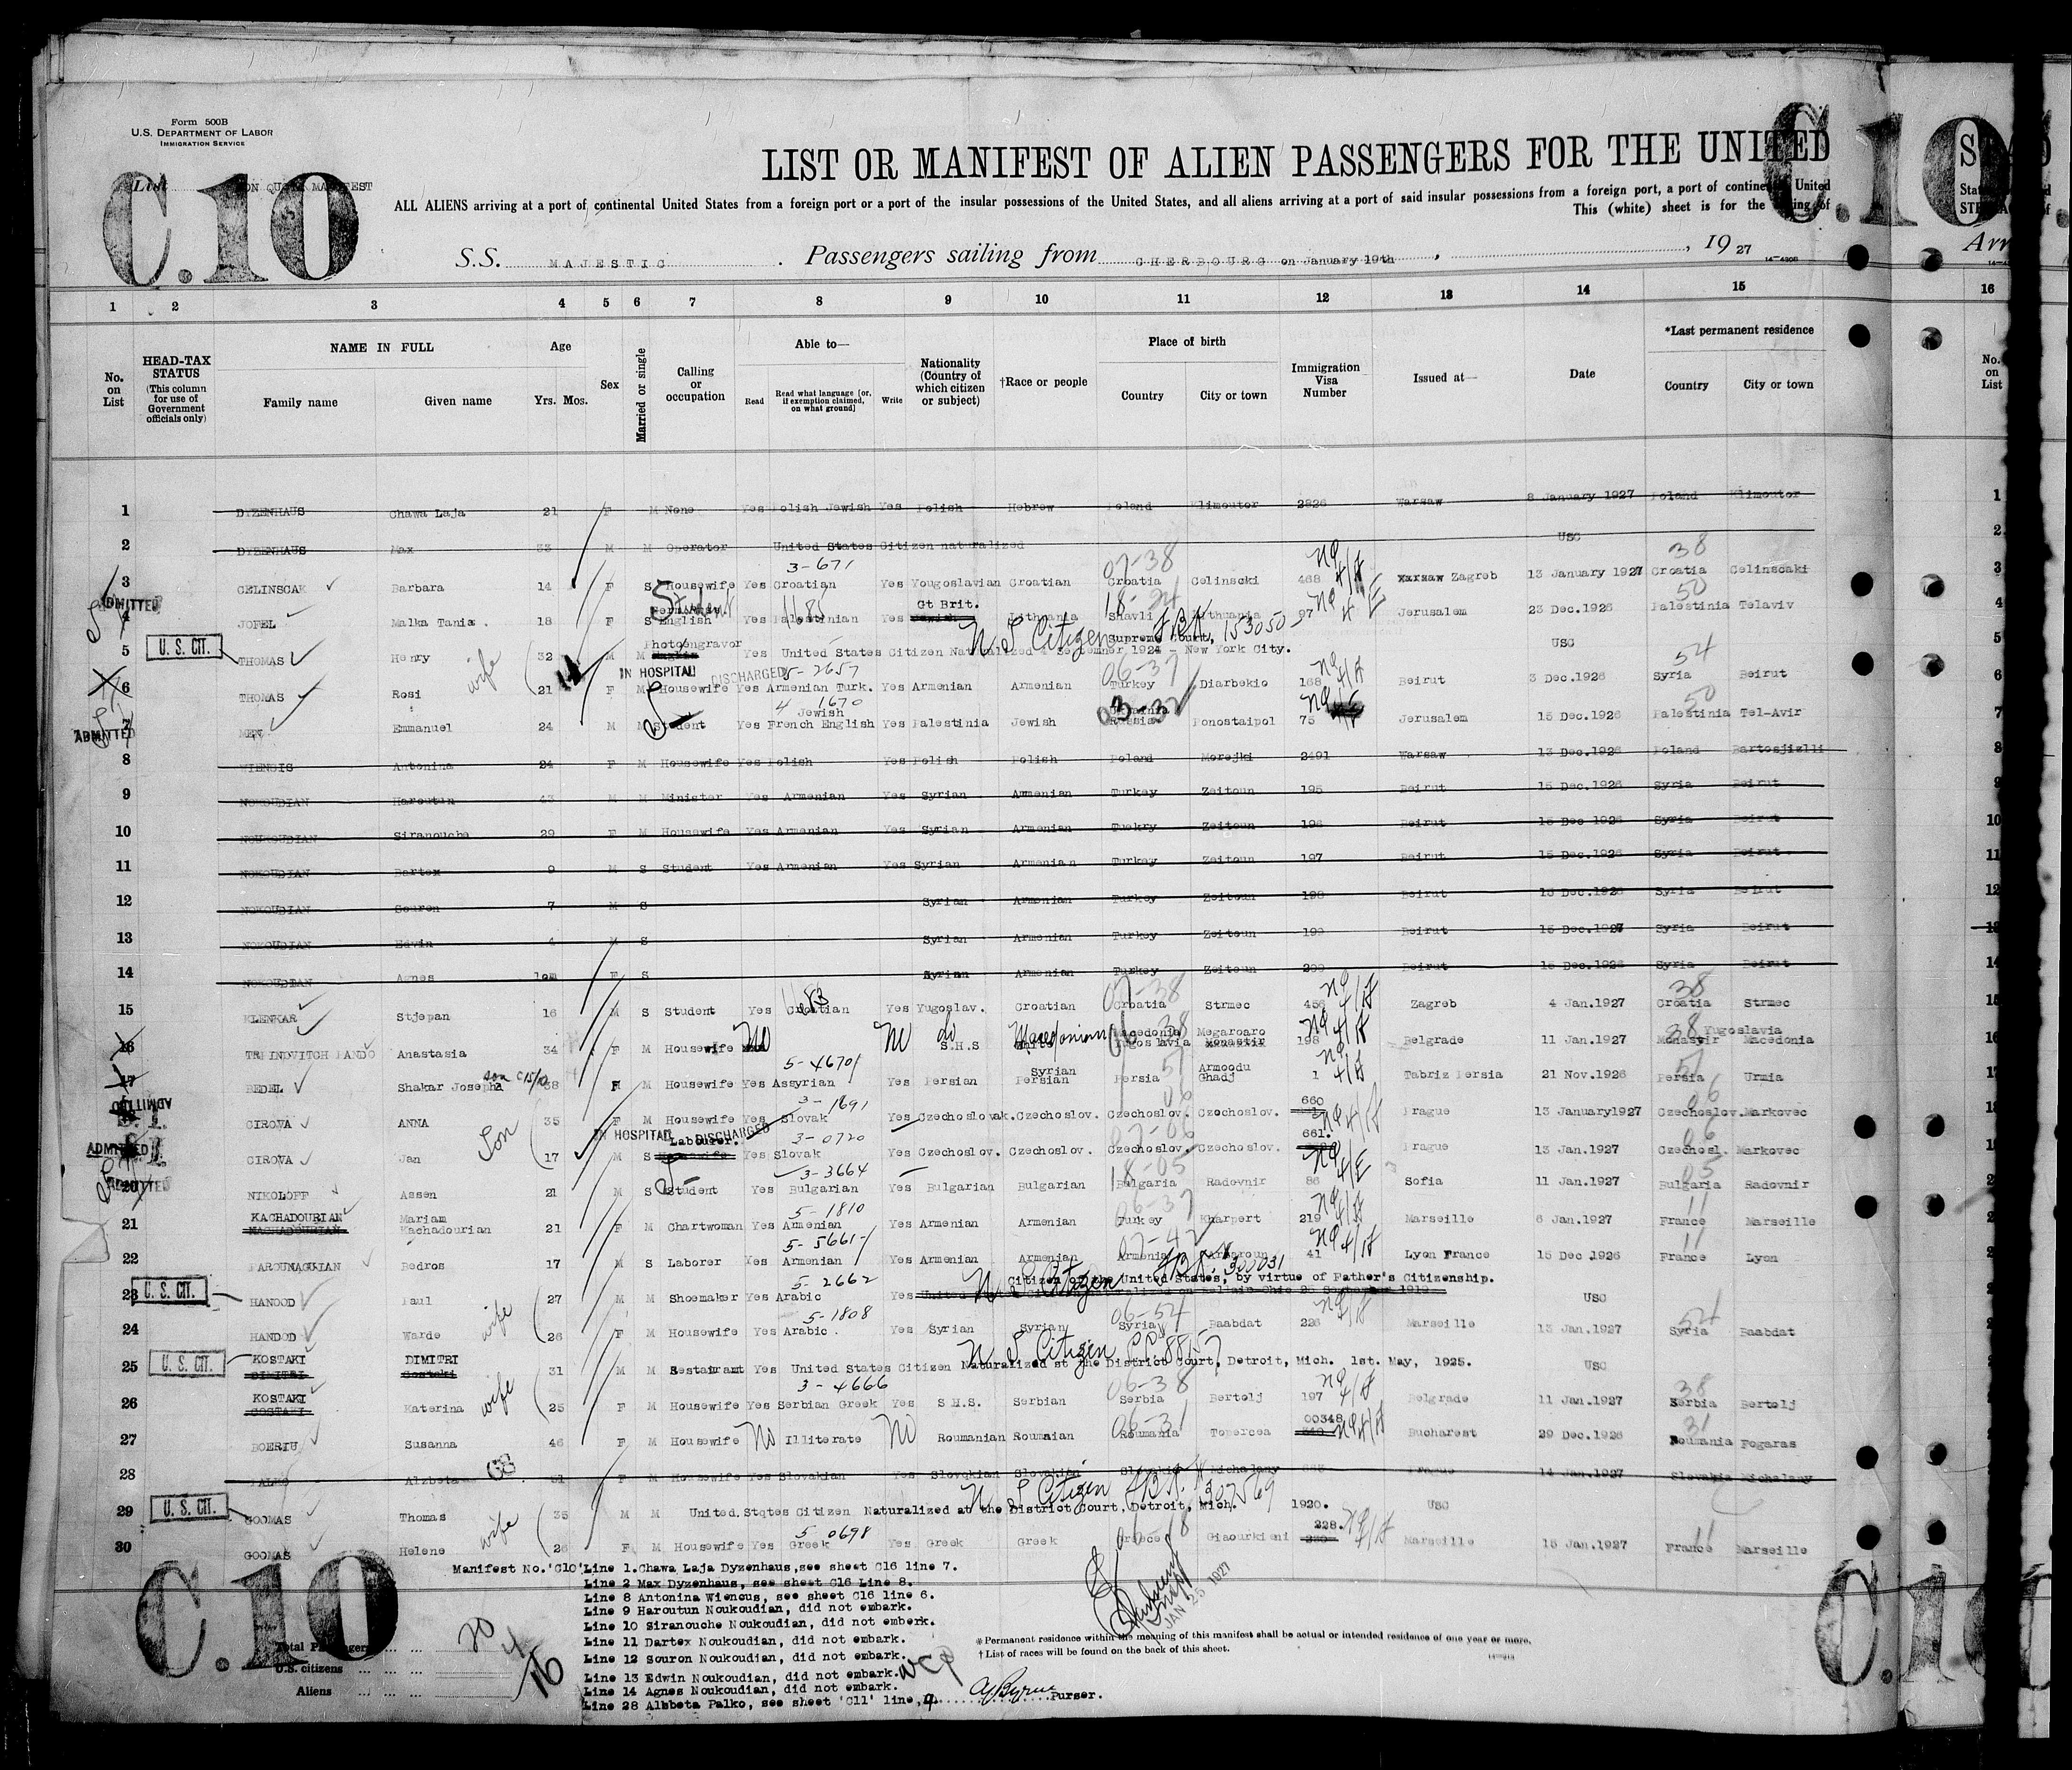 Form 500B
U.S. DEPARTMENT OF LABOR
IMMIGRATION SERVICE
C.10
C.10
List NON QUOTA MANIFEST
LIST OR MANIFEST OF ALIEN PASSENGERS FOR THE UNITED
ALL ALIENS arriving at a port of continental United States from a foreign port or a port of the insular possessions of the United States, and all aliens arriving at a port of said insular possessions from a foreign port, a port of continental United
This (white) sheet is for the listing of
S.S. MAJESTIC . Passengers sailing from CHERBOURG on January 19th , 19 27
1 2 3 4 5 6 7 8 9 10 11 12 13 14 15 16
No. on List
HEAD-TAX STATUS (This column for use of Government officials only)
NAME IN FULL Family name Given name
Age Yrs. Mos.
Sex
Married or single
Calling or occupation
Able to— Read Read what language [or, if exemption claimed, on what ground] Write
Nationality (Country of which citizen or subject)
†Race or people
Place of birth Country City or town
Immigration Visa Number
Issued at—
Date
*Last permanent residence Country City or town
No. on List
1 DYZENHAUS Chawa Laja 21 F M None Yes Polish Jewish Yes Polish Hebrew Poland Klimoutor 2826 Warsaw 8 January 1927 Poland Klimoutor 1
2 DYZENHAUS Max 33 M M Operator United States Citizen naturalized USC 2
3-671 07-38 38
3 CELINSCAK Barbara 14 F S Housewife Yes Croatian Yes Yougoslavian Croatian Croatia Celinscki 468 Warsaw Zagreb 13 January 1927 Croatia Celinscaki 3
ADMITTED Gt Brit. 50
4 JOFEL Malka Tania. 18 F S English Yes Palestinian Yes Lithuania Shavli Lithuania 97 Jerusalem 23 Dec.1926 Palestinia Telaviv 4
U. S. CIT. Photoengravor U S Citizen Supreme Court, 153050
5 THOMAS Henry wife 32 M M Yes United States Citizen Naturalized 4 September 1924 - New York City. USC 5
IN HOSPITAL DISCHARGED 5-2657 06-37 54
6 THOMAS Rosi 21 F M Housewife Yes Armenian Turk. Yes Armenian Armenian Turkey Diarbekio 168 Beirut 3 Dec.1926 Syria Beirut 6
4 1670 Jewish Ukrainia 50
7 MEN Emmanuel 24 M M Student Yes French English Yes Palestinia Jewish Russian Ponostaipol 75 Jerusalem 15 Dec.1926 Palestinia Tel-Avir 7
ADMITTED
8 WIENDIS Antonina 24 F M Housewife Yes Polish Yes Polish Polish Poland Morejki 2491 Warsaw 13 Dec.1926 Poland Bartosjizlli 8
9 NOKOUDIAN Haroutun 43 M M Minister Yes Armenian Yes Syrian Armenian Turkey Zeitoun 195 Beirut 15 Dec.1926 Syria Beirut 9
10 NOUKOUDIAN Siranoucha 29 F M Housewife Yes Armenian Yes Syrian Armenian Tuekry Zeitoun 196 Beirut 15 Dec 1926 Syria Beirut 10
11 NOKOUDIAN Dartex 9 M S Student Yes Armenian Yes Syrian Armenian Turkey Zeitoun 197 Beirut 15 Dec.1926 Syria Beirut 11
12 NOKOUDIAN Souron 7 M S Syrian Armenian Turkey Zeitoun 198 Beirut 15 Dec.1926 Syria Beirut 12
13 NOKOUDIAN Edwin 4 M S Syrian Armenian Turkey Zeitoun 199 Beirut 15 Dec.1927 Syria Beirut 13
14 NOKOUDIAN Agnes 10m F S Syrian Armenian Turkey Zeitoun 200 Beirut 15 Dec.1926 Syria Beirut 14
07-38 38
15 KLENKAR Stjepan 16 M S Student Yes Croatian Yes Yugoslav. Croatian Croatia Strmec 456 Zagreb 4 Jan.1927 Croatia Strmec 15
No No do Macedonian Macedonia Megaroaro 38 Yugoslavia
16 Anastasia 34 F M Housewife S.H.S White Yugoslavia Monastir 198 Belgrade 11 Jan.1927 Monastir Macedonia 16
5-4670 Syrian Armoodu 57
17 BEDEL Shakar Josepha son C15/10 38 F M Housewife Yes Assyrian Yes Persian Persian Persia Ghadj 1 Tabriz Persia 21 Nov.1926 Persia Urmia 17
ADMITTED 3-1691 660 06
CIROVA ANNA 35 F M Housewife Yes Slovak Yes Czechoslovak. Czechoslov. Czechoslov. Czechoslov. Prague 13 January1927 Czechoslov. Markovec 18
Son IN HOSPITAL Labourer. DISCHARGED 3-0720 07-06 661. 06
ADMITTED CIROVA Jan 17 M S Housewife Yes Slovak Yes Czechoslov. Czechoslov. Czechoslov. Czechoslov. Prague 13 Jan.1927 Czechosl. Markovec
3-3664 18-05 05
20 NIKOLOFF Assen 21 M S Student Yes Bulgarian Yes Bulgarian Bulgarian Bulgaria Radovnir 86 Sofia 11 Jan.1927 Bulgaria Radovnir
ADMITTED
KACHADOURIAN Mariam 5-1810 06-37 11
21 Kachadourian 21 F M Chartwoman Yes Armenian Yes Armenian Armenian Turkey Kharpert 219 Marseille 6 Jan.1927 France Marseille
5-5661 07-42 11
22 Bedros 17 M S Laborer Yes Armenian Yes Armenian Armenian Armenia 41 Lyon France 15 Dec.1926 France Lyon
U. S. CIT. 5-2662 U S Citizen 300031
Citizen of the United States, by virtue of Father's Citizenship.
23 HANOOD Paul wife 27 M M Shoemaker Yes Arabic Yes USC
5-1808 06-54 54
24 HANDOD Warde 26 F M Housewife Yes Arabic. Yes Syrian Syrian Syria Baabdat 226 Marseille 13 Jan.1927 Syria Baabdat
U. S. CIT. KOSTAKI DIMITRI U S Citizen
25 DIMITRI Costaki wife 31 M M Restaurant Yes United States Citizen Naturalized at the District Court, Detroit, Mich. 1st. May, 1925. USC
KOSTAKI 3-4666 06-38 38
26 COSTAKI Katerina 25 F M Housewife Yes Serbian Greek Yes S.M.S. Serbian Serbia Bertolj 197 Belgrade 11 Jan.1927 Serbia Bertolj
06-31 00348 31
27 BOERIU Susanna 46 F M Housewife No Illiterate No Roumanian Roumaian Roumania Topercea Bucharest 29 Dec.1926 Roumania Fogaras
28 PALKO Alzbeta 31 F M Housewife Yes Slovakian Yes Slovakian Slovakian Slovakia Michalany Prague 14 Jan.1927 Slovakia Michalany
U. S. CIT. U S Citizen 307569
29 GOOMAS Thomas wife 35 M M United States Citizen Naturalized at the District Court, Detroit, Mich. 1920. USC
5-0698 228. 11
30 GOOMAS Helene 26 F M Housewife Yes Greek Yes Greek Greek Greece Giaourkieni Marseille 15 Jan.1927 France Marseille
Manifest No.'C10' Line 1.Chawa Laja Dyzenhaus,see sheet C16 line 7.
Line 2 Max Dyzenhaus, see sheet C16 Line 8.
Line 8 Antonina Wienous, see sheet C16 line 6.
Line 9 Haroutun Noukoudian, did not embark.
Line 10 Siranouche Noukoudian, did not embark.
Line 11 Dartex Noukoudian, did not embark.
Line 12 Souron Noukoudian, did not embark.
Line 13 Edwin Noukoudian, did not embark.
Line 14 Agnes Noukoudian, did not embark.
Line 28 Albbeta Palko, see sheet 'C11' line, 9. Purser.
C.10
Total Passengers 20
U.S. citizens 4
Aliens 16
JAN 25 1927
* Permanent residence within the meaning of this manifest shall be actual or intended residence of one year or more.
† List of races will be found on the back of this sheet.